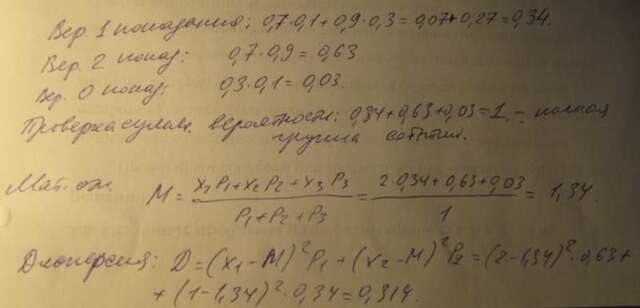 Вер. 1 попадания: 0,7·0,1+0,9·0,3=0,07+0,27=0,34.
Вер. 2 попад: 0,7·0,9=0,63
Вер. 0 попад: 0,3·0,1=0,03.
Проверка суммы. вероятности: 0,34+0,63+0,03=1. – полная
группа событий.
Мат. ож. M = (x₁P₁+x₂P₂+x₃P₃)/(P₁+P₂+P₃) = (2·0,34+0,63+0,03)/1 = 1,34.
Дисперсия: D=(x₁-M)²P₁+(x₂-M)²P₂=(2-1,34)²·0,63+
+(1-1,34)²·0,34=0,314.